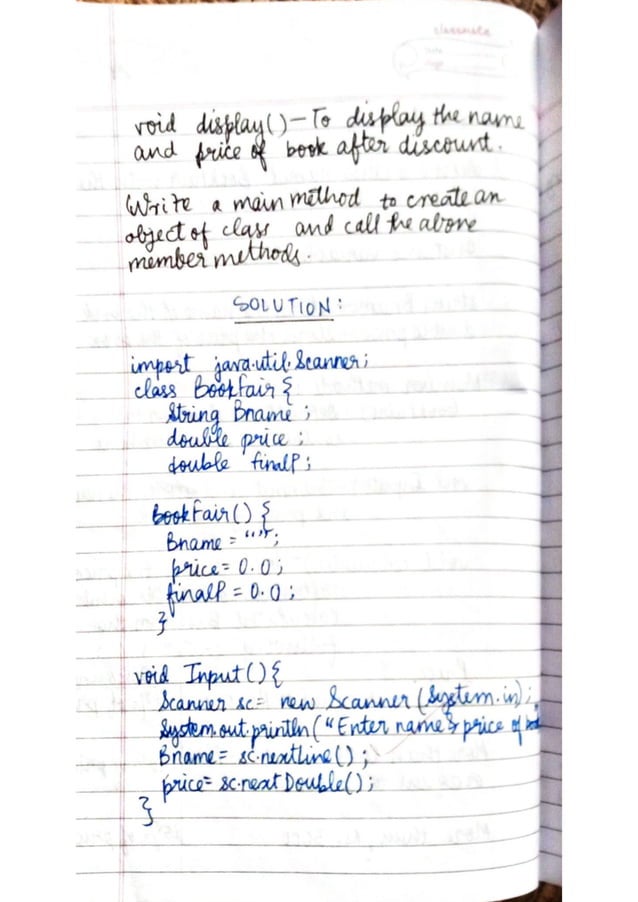 classmate
void display() – To display the name
and price of book after discount.
Write a main method to create an
object of class and call the above
member methods.
SOLUTION:
import java.util.Scanner;
class BookFair {
String Bname ;
double price ;
double finalP ;
BookFair() {
Bname = "";
price = 0.0 ;
finalP = 0.0 ;
}
void Input() {
Scanner sc = new Scanner (System.in);
System.out.println("Enter name & price of
Bname = sc.nextLine();
price = sc.nextDouble();
}